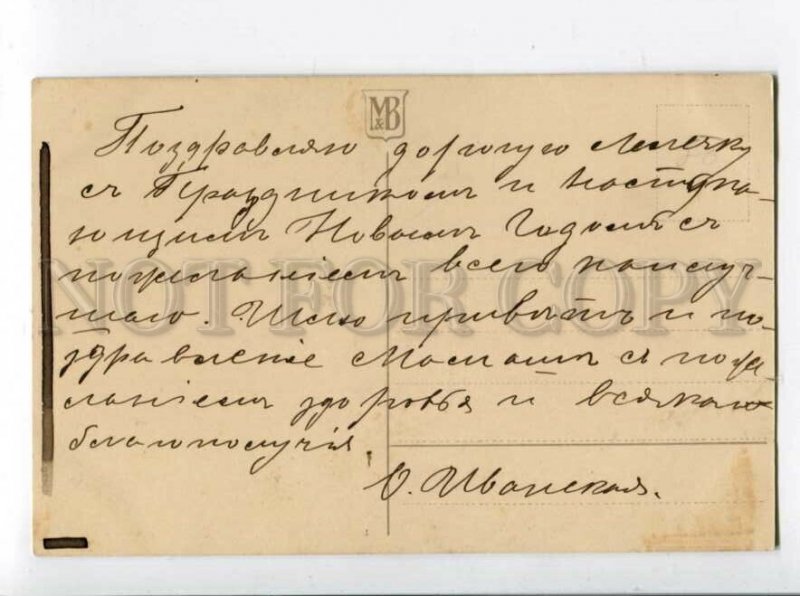 M&B
Поздравляю дорогую Лелечку
съ Праздникомъ и наступа-
ющимъ Новымъ Годомъ съ
пожеланіемъ всего наилуч-
шаго. Шлю привѣтъ и по-
здравленіе Мамашѣ съ поже
ланіемъ здоровья и всякаго
благополучія.
О. Иванская.
NOT FOR COPY